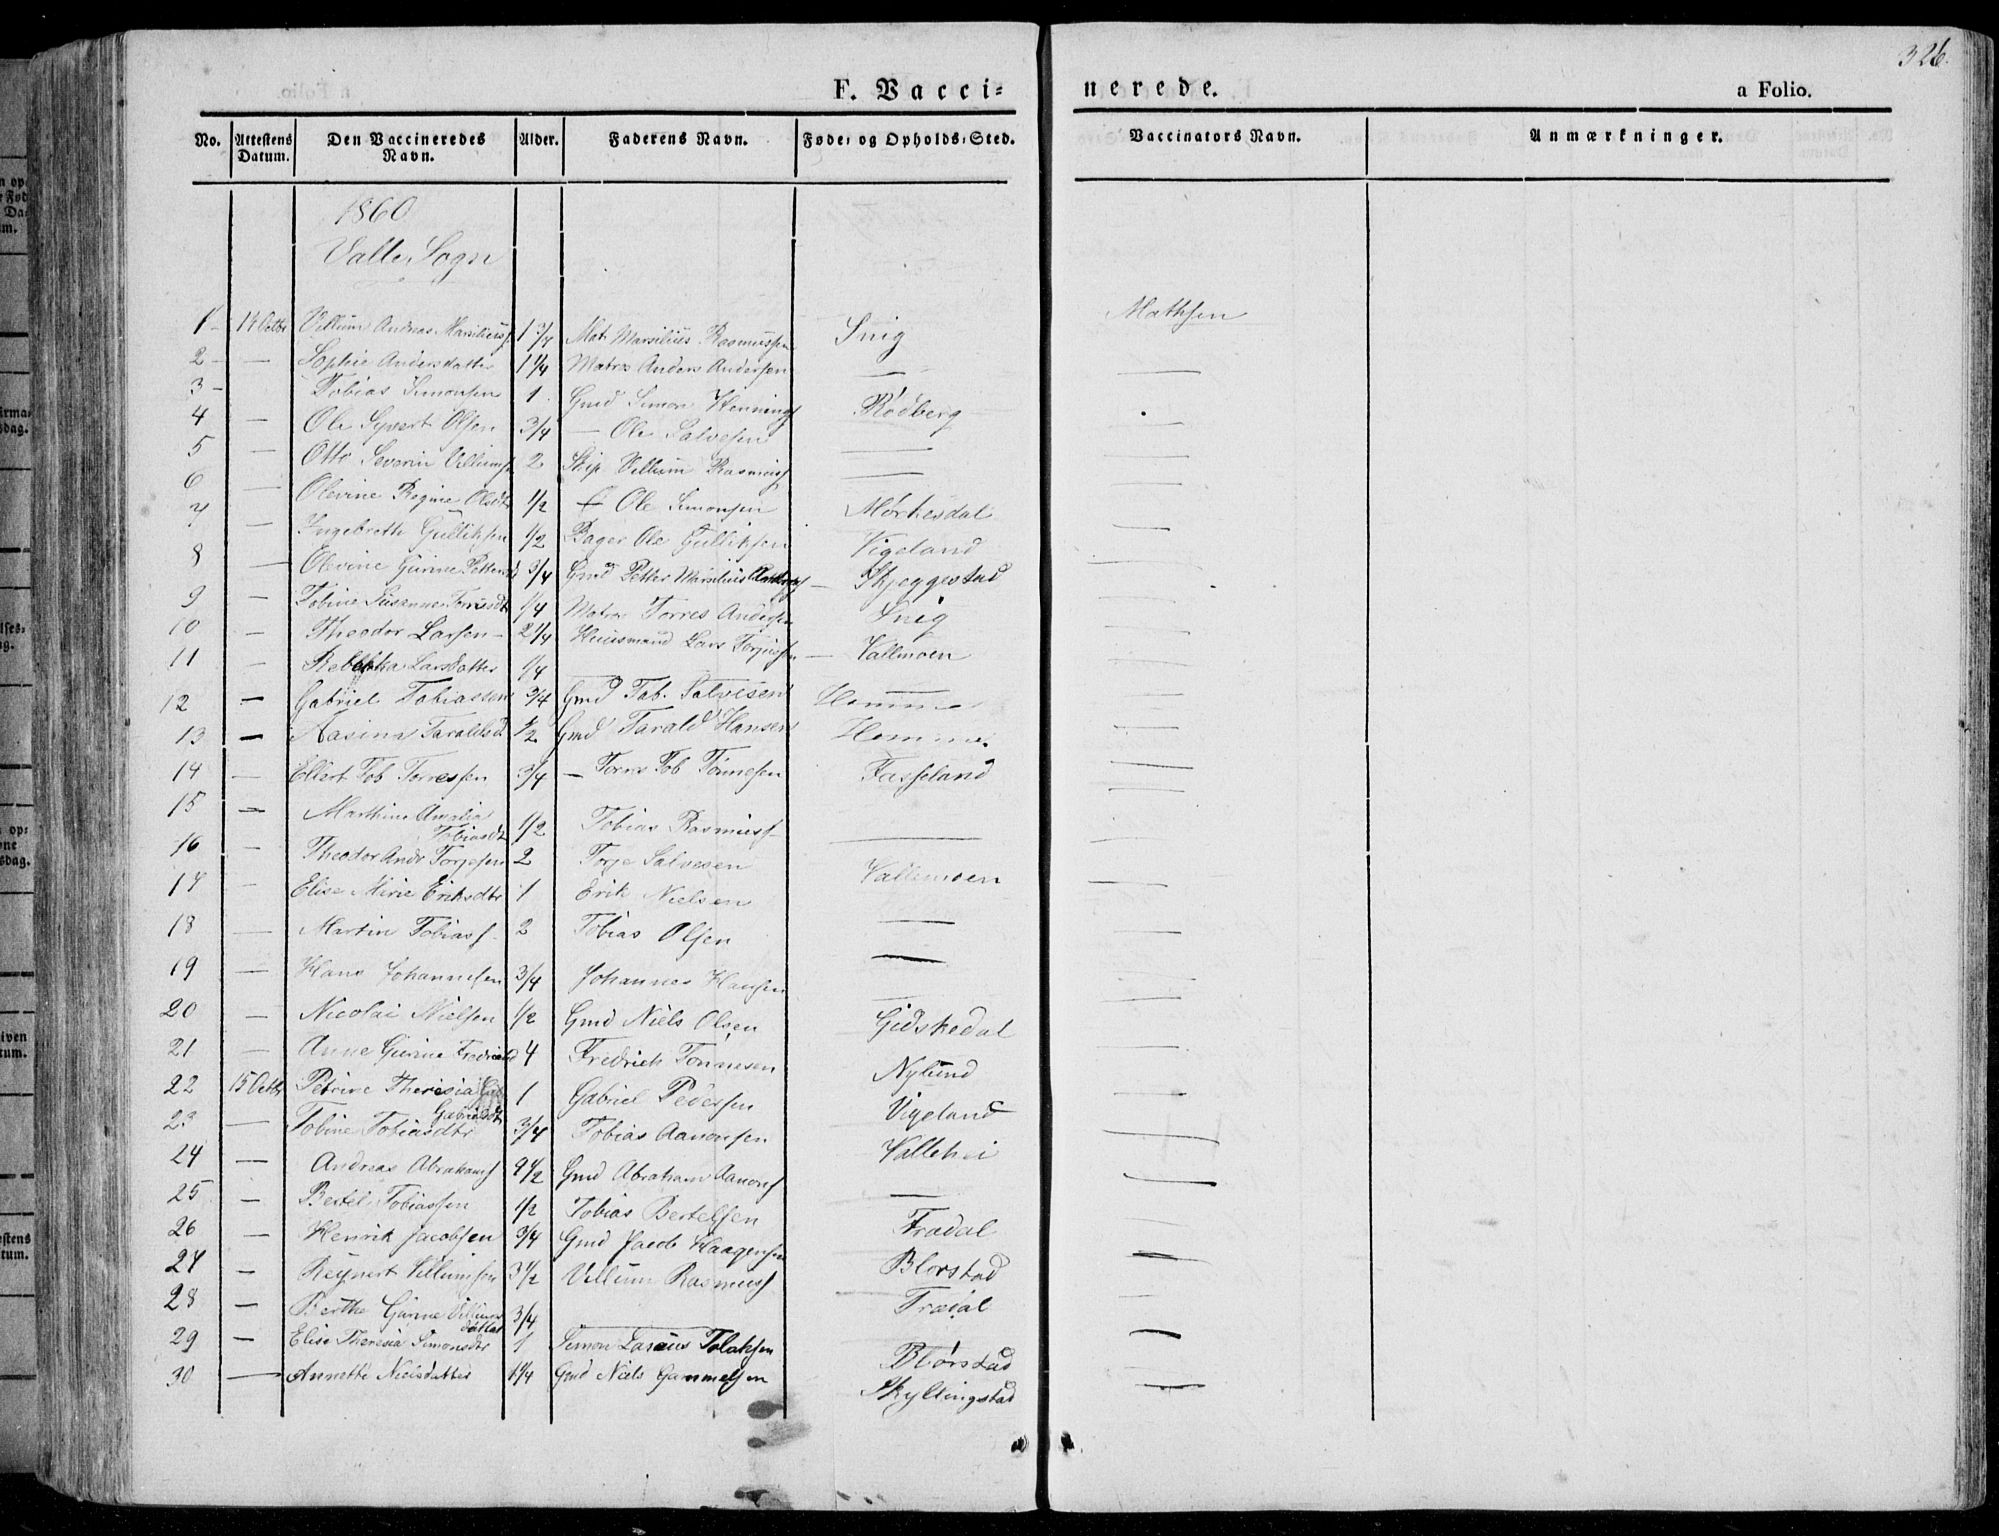 326.
F. Vaccinerede.
a Folio.
No. Attestens Datum. Den Vaccineredes Navn. Alder. Faderens Navn. Føde- og Opholds-Sted. Vaccinators Navn. Anmærkninger.
1860
Valle Sogn
1 - 14 Octbr Villum Andreas Marsiliuss. 1 3/4 Mat Marsilius Rasmussen Snig Mathsen
2 - — Sophie Andersdatter 1 1/4 Matros Anders Andersen — —
3 - Tobias Simonsen 1. Gmd Simon Hennings Rødberg
4 — Ole Syvert Olsen 3/4 — Ole Salvesen — —
5 — Otto Severin Villums 2 Skip Villum Rasmuss — —
6 — Olevine Regine Olsdtr 1/2 Ole Simonsen Mørkesdal —
7 — Ingebreth Gulliksen 1/2 Bager Ole Gulliksen Vigeland —
8 — Olevine Gurine Pettersd 3/4 Gmd Petter Marsilius — Skjeggestad —
9 — Tobine Susanne Torresdtr 1/4 Matros Torres Andersen Snig —
10 — Theodor Larsen - 2 1/4 Huusmand Lars Torjussen — Vallmoen —
11 — Rebekka Larsdatter 1/4 — — —
12 — Gabriel Tobiassen 3/4 Gmd Tob. Salvesen Homme —
13 — Aasine Taraldsd 1/2 Gmd Tarald Hansen Homme. —
14 — Ellert Tob Torressen 3/4 — Torres Tob Tønnesen Fasseland —
15 — Marthine Amalia Tobiasdtr 1/2 Tobias Rasmuss — —
16 — Theodor Andr Torjesen 2 Torje Salvesen Vallemoen —
17 — Elise Mirie Eriksdtr 1 Erik Nielsen — —
18 — Martin Tobiass 2 Tobias Olsen — —
19 — Hans Johannesen 3/4 Johannes Hansen — —
20 — Nicolai Nielsen 1/2 Gmd Niels Olsen Gidskedal —
21 — Anne Gurine Fredriksd 4 Fredrich Tønnesen Nylund —
22 15 Octbr Petrine Theresia Gabrielsdtr 1 Gabriel Pedersen Vigeland —
23 — Tobine Tobiasdtr 3/4 Tobias Aanonsen Vallehei —
24 — Andreas Abrahams 9 1/2 Gmd Abraham Aanons — —
25 — Bertel Tobiassen 1/2 Tobias Bertelsen Frædal —
26 — Henrik Jacobsen 3/4 Gmd Jacob Haagensen Blørstad —
27 — Reinert Villumsen 3 1/2 Villum Rasmuss Trædal —
28 — Berthe Gurine Villumsdatter 3/4 — —
29 — Elise Theresia Simonsdtr 1 Simon Zarius Tolaksen Blørstad —
30 — Annette Nielsdatter 1 1/4 Gmd Niels Gammelsen Skyllingstad —